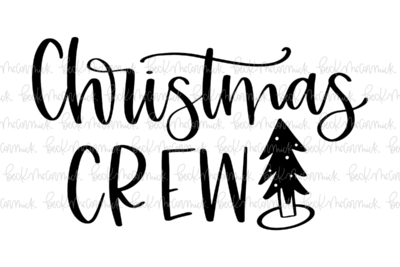 Christmas
CREW